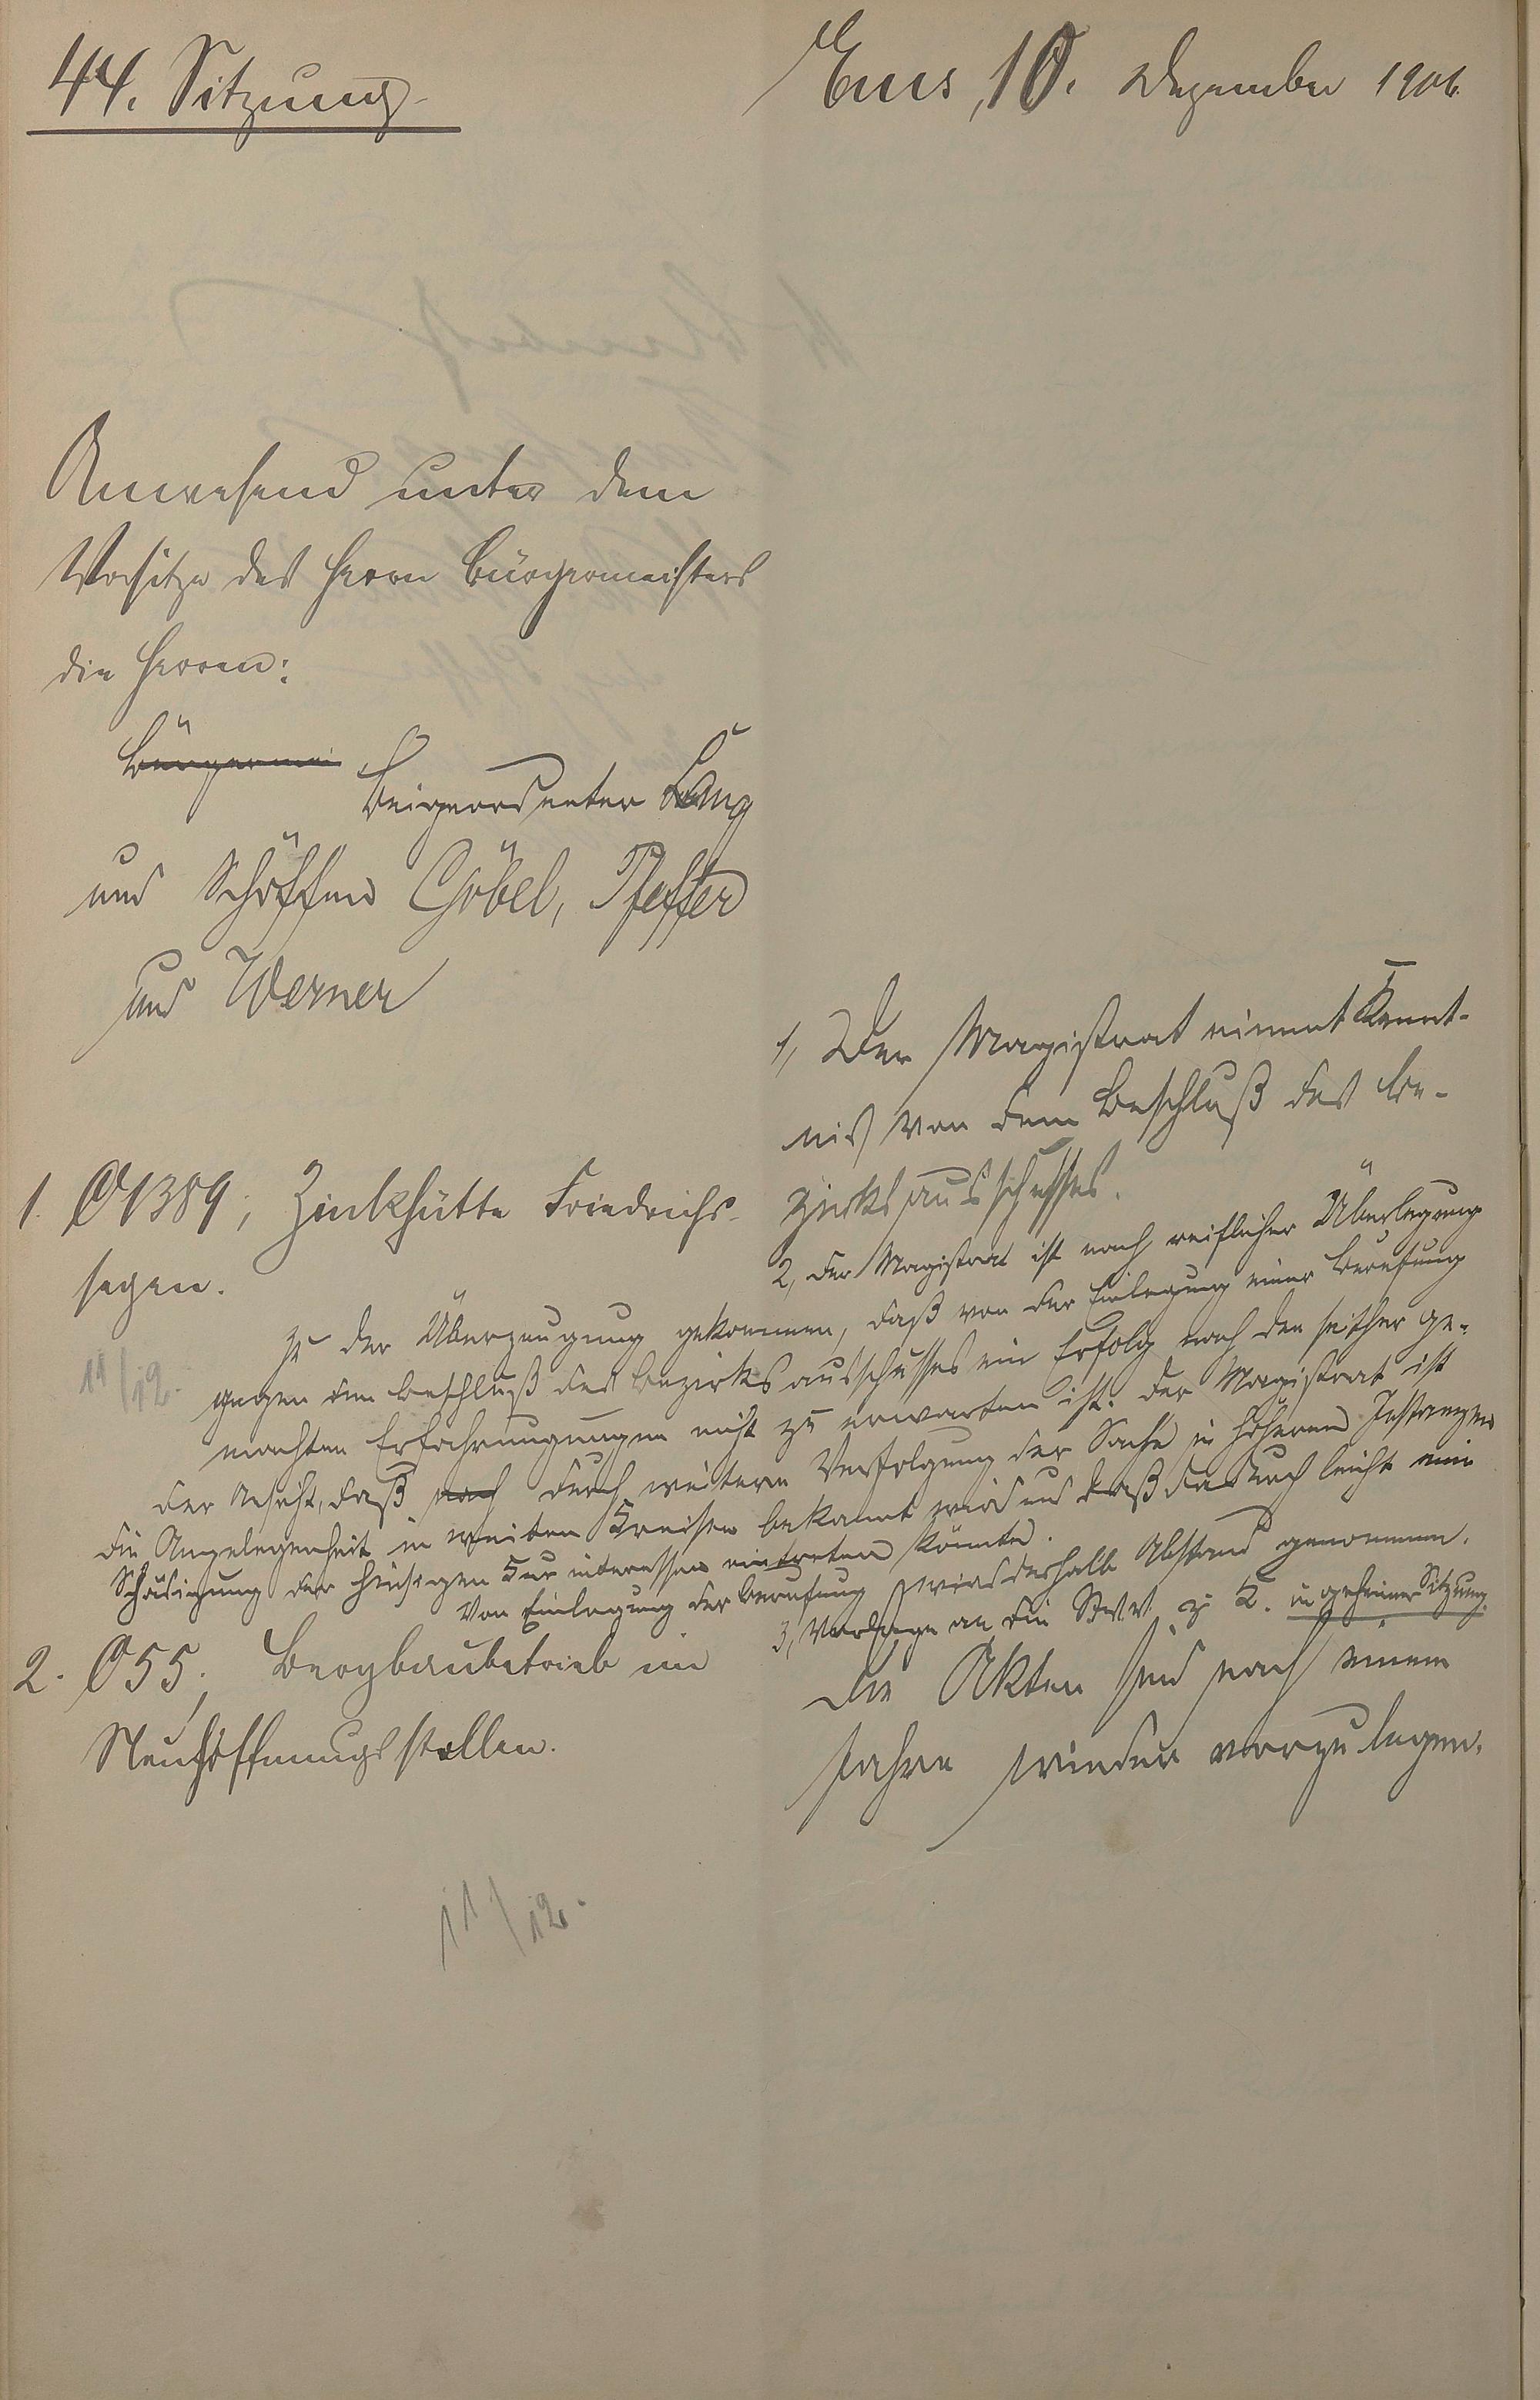 44. Sitzung
Ems, 10. Dezember 1906.
Anwesend unter dem
Vorsitze des Herrn Bürgermeisters
die Herren:
Bürgermei
Beigeordneter Lang
und Schöffen Göbel, Pfeffer
und Werner
1. O 1389, Zinkhütte Friedrichs-
segen.
11/12.
1, Der Magistrat nimmt Kennt-
nis von dem Beschluß des Be-
zirksausschusses.
2, Der Magistrat ist nach reiflicher Überlegung
zu der Überzeugung gekommen, daß von der Einlegung einer Berufung
gegen den Beschluß des Bezirksausschusses ein Erfolg nach den seither ge-
machten Erfahrungungen nicht zu erwarten ist. Der Magistrat ist
der Ansicht, daß noch durch weitere Verfolgung der Sache in höheren Instanzen
die Angelegenheit in weiten Kreisen bekannt wird und daß dadurch leicht eine
Schädigung der hiesigen Kurinteressen eintreten könnte.
Von Einlegung der Berufung wird deshalb Abstand genommen.
3, Vorlage an die StVV. z. K. in geheimer Sitzung.
2. O 55, Bergbaubetrieb im
Neuhoffnungsstollen.
Die Akten sind nach einem
Jahre wieder vorzulegen.
11/12.